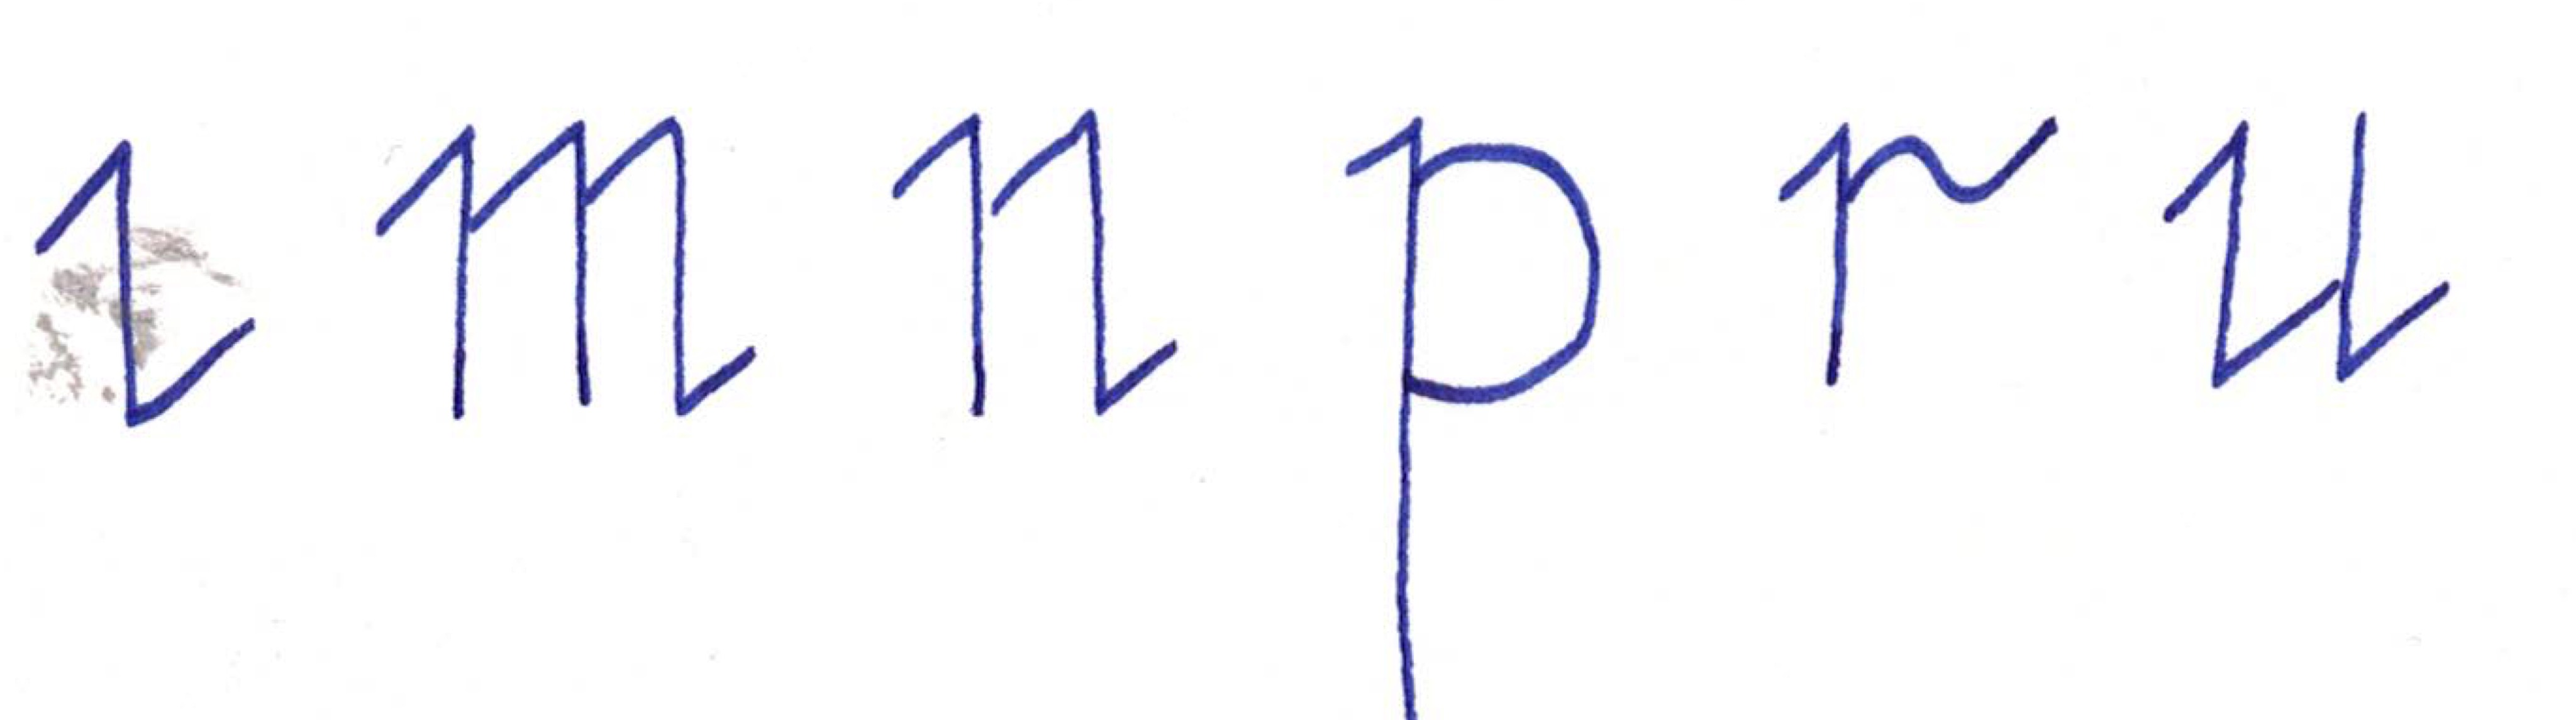 ı m n p r u